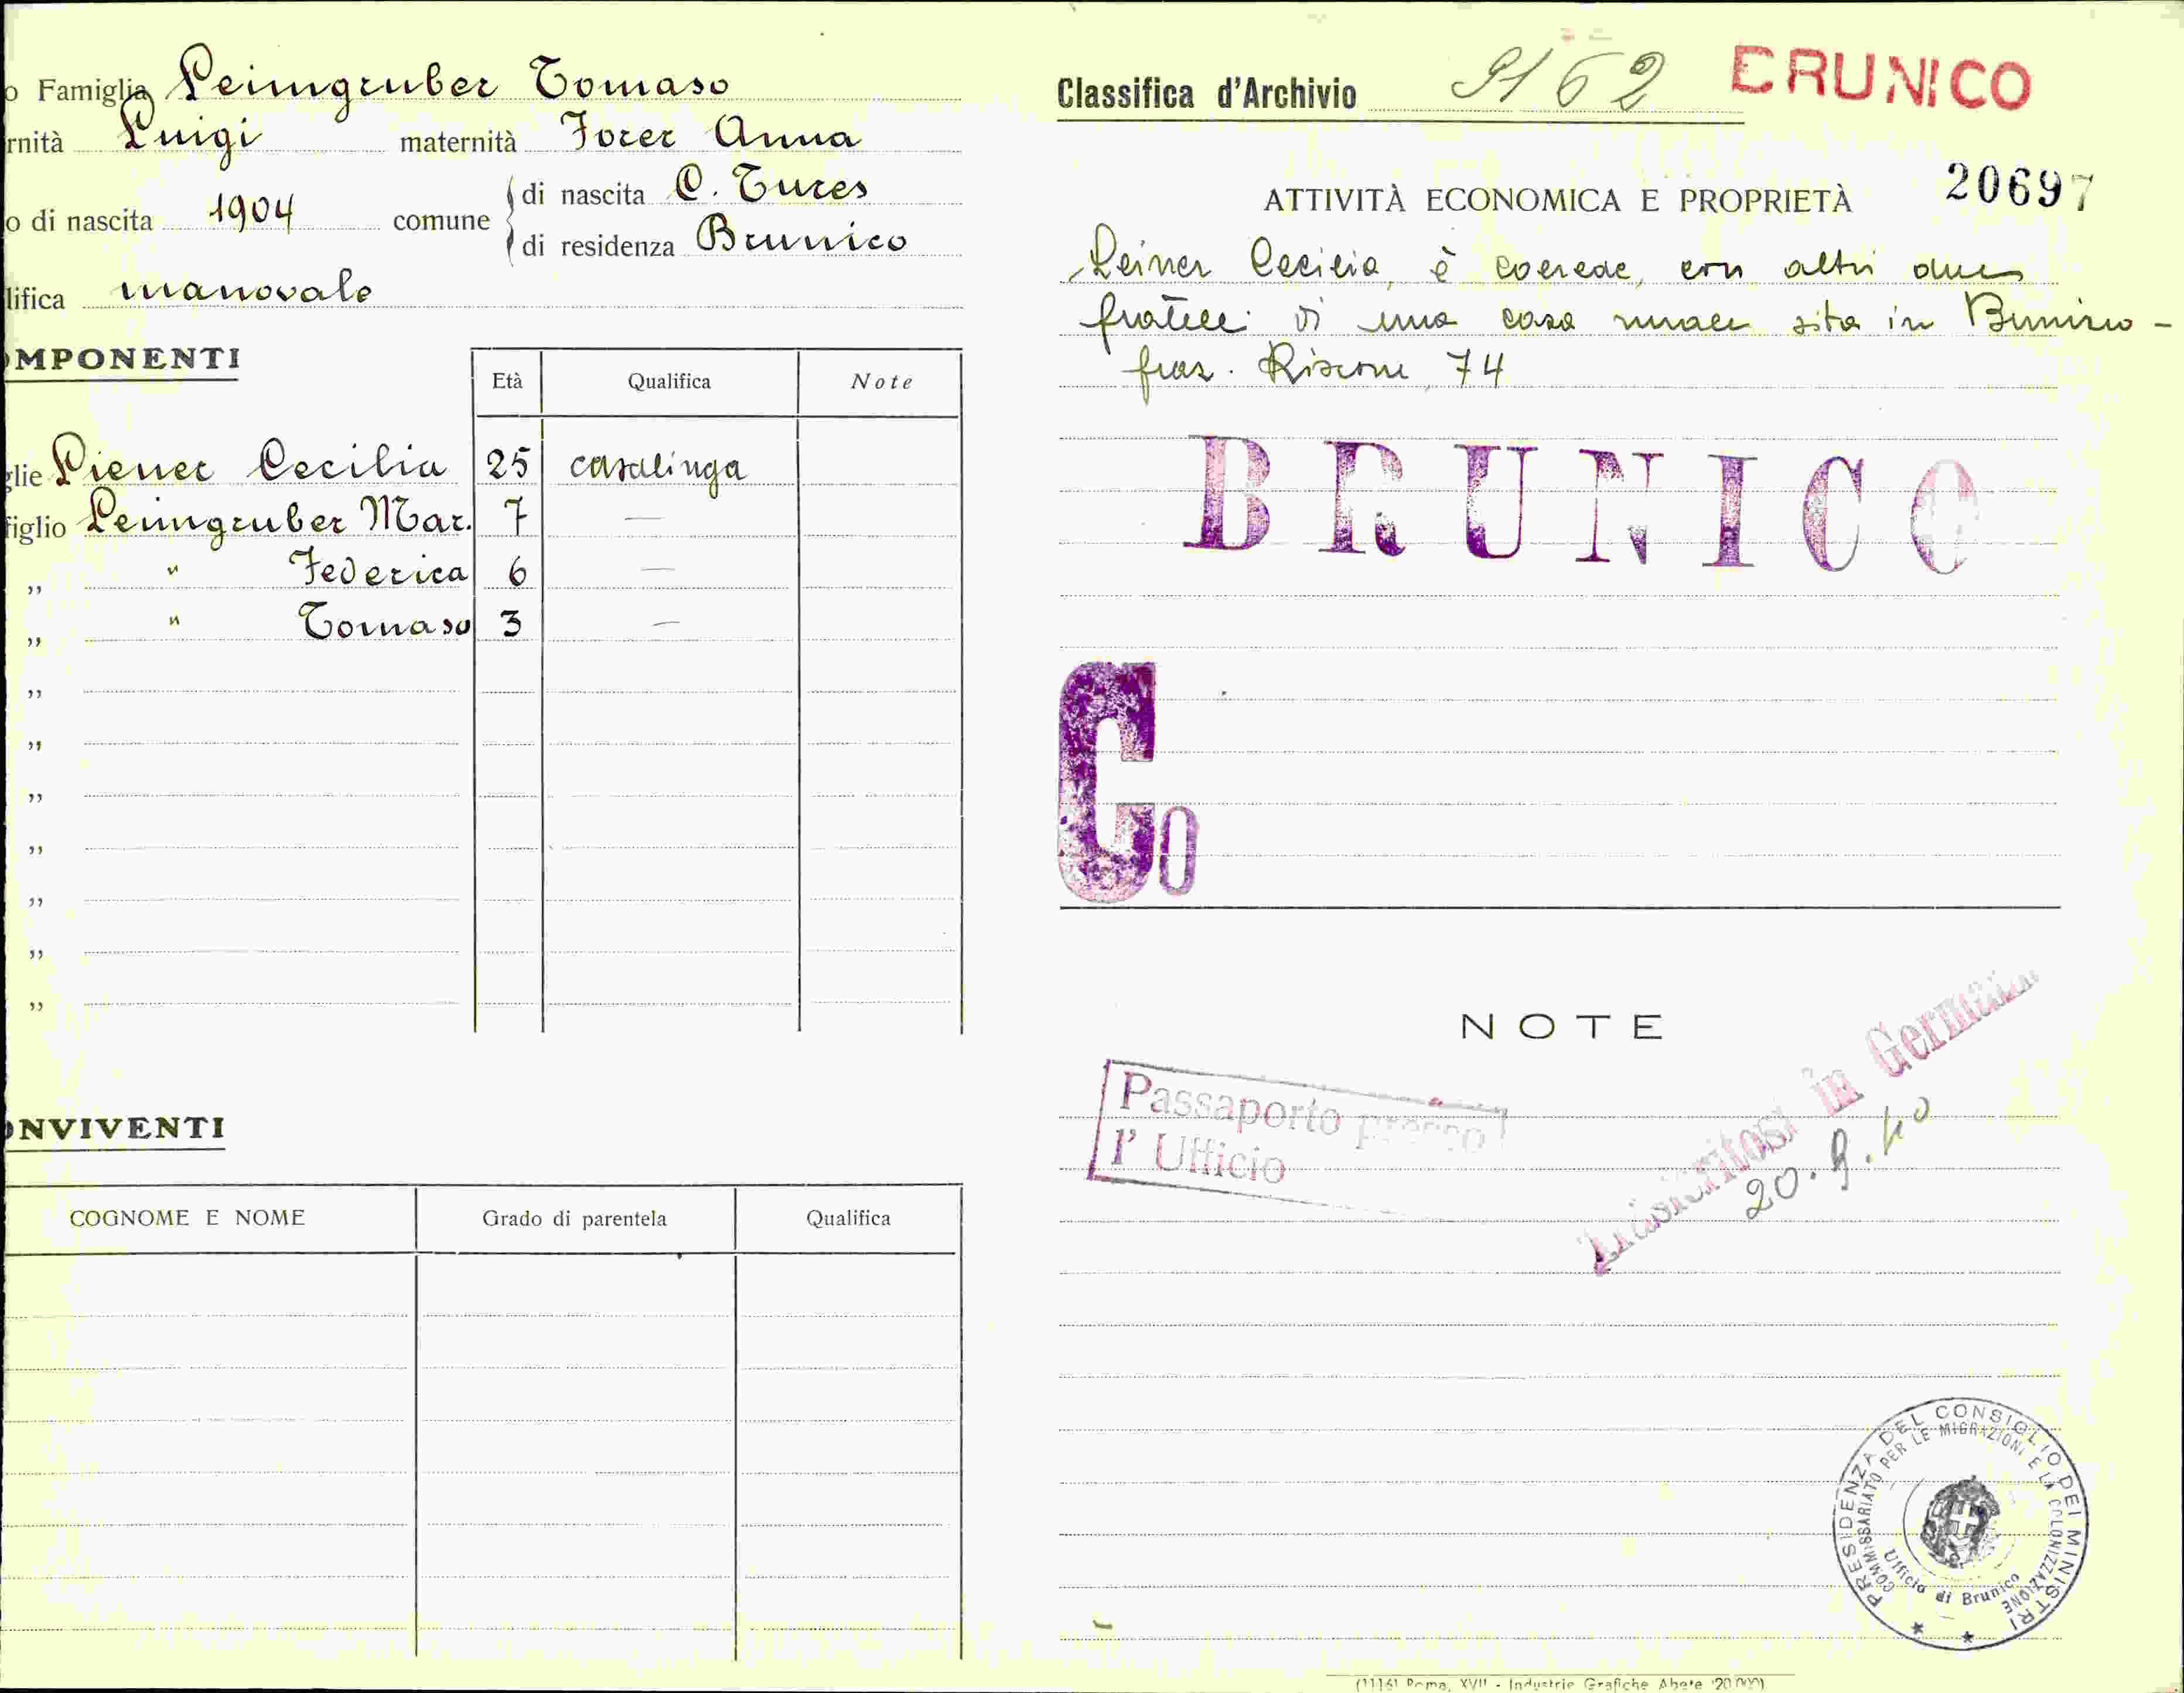 o Famiglia Leimgruber Tomaso
rnità Luigi maternità Forer Anna
o di nascita 1904 comune di nascita C. Tures
di residenza Brunico
lifica manovale
OMPONENTI
Età Qualifica Note
glie Piener Cecilia 25 casalinga
figlio Leimgruber Mar. 7 —
„ " Federica 6 —
„ " Tomaso 3 —
„
„
„
„
„
„
„
ONVIVENTI
COGNOME E NOME Grado di parentela Qualifica
Classifica d'Archivio 9162 BRUNICO
20697
ATTIVITÀ ECONOMICA E PROPRIETÀ
Leiner Cecilia, è coerede, con altri due
fratelli di una casa rurale sita in Brunico -
fraz. Riscone 74
BRUNICO
Co
NOTE
Passaporto presso
l' Ufficio
Trasferitosi in Germania
20.9.40
PRESIDENZA DEL CONSIGLIO DEI MINISTRI
COMMISSARIATO PER LE MIGRAZIONI E LA COLONIZZAZIONE
Ufficio di Brunico
(1116) Roma, XVII - Industrie Grafiche Abete (20.000)